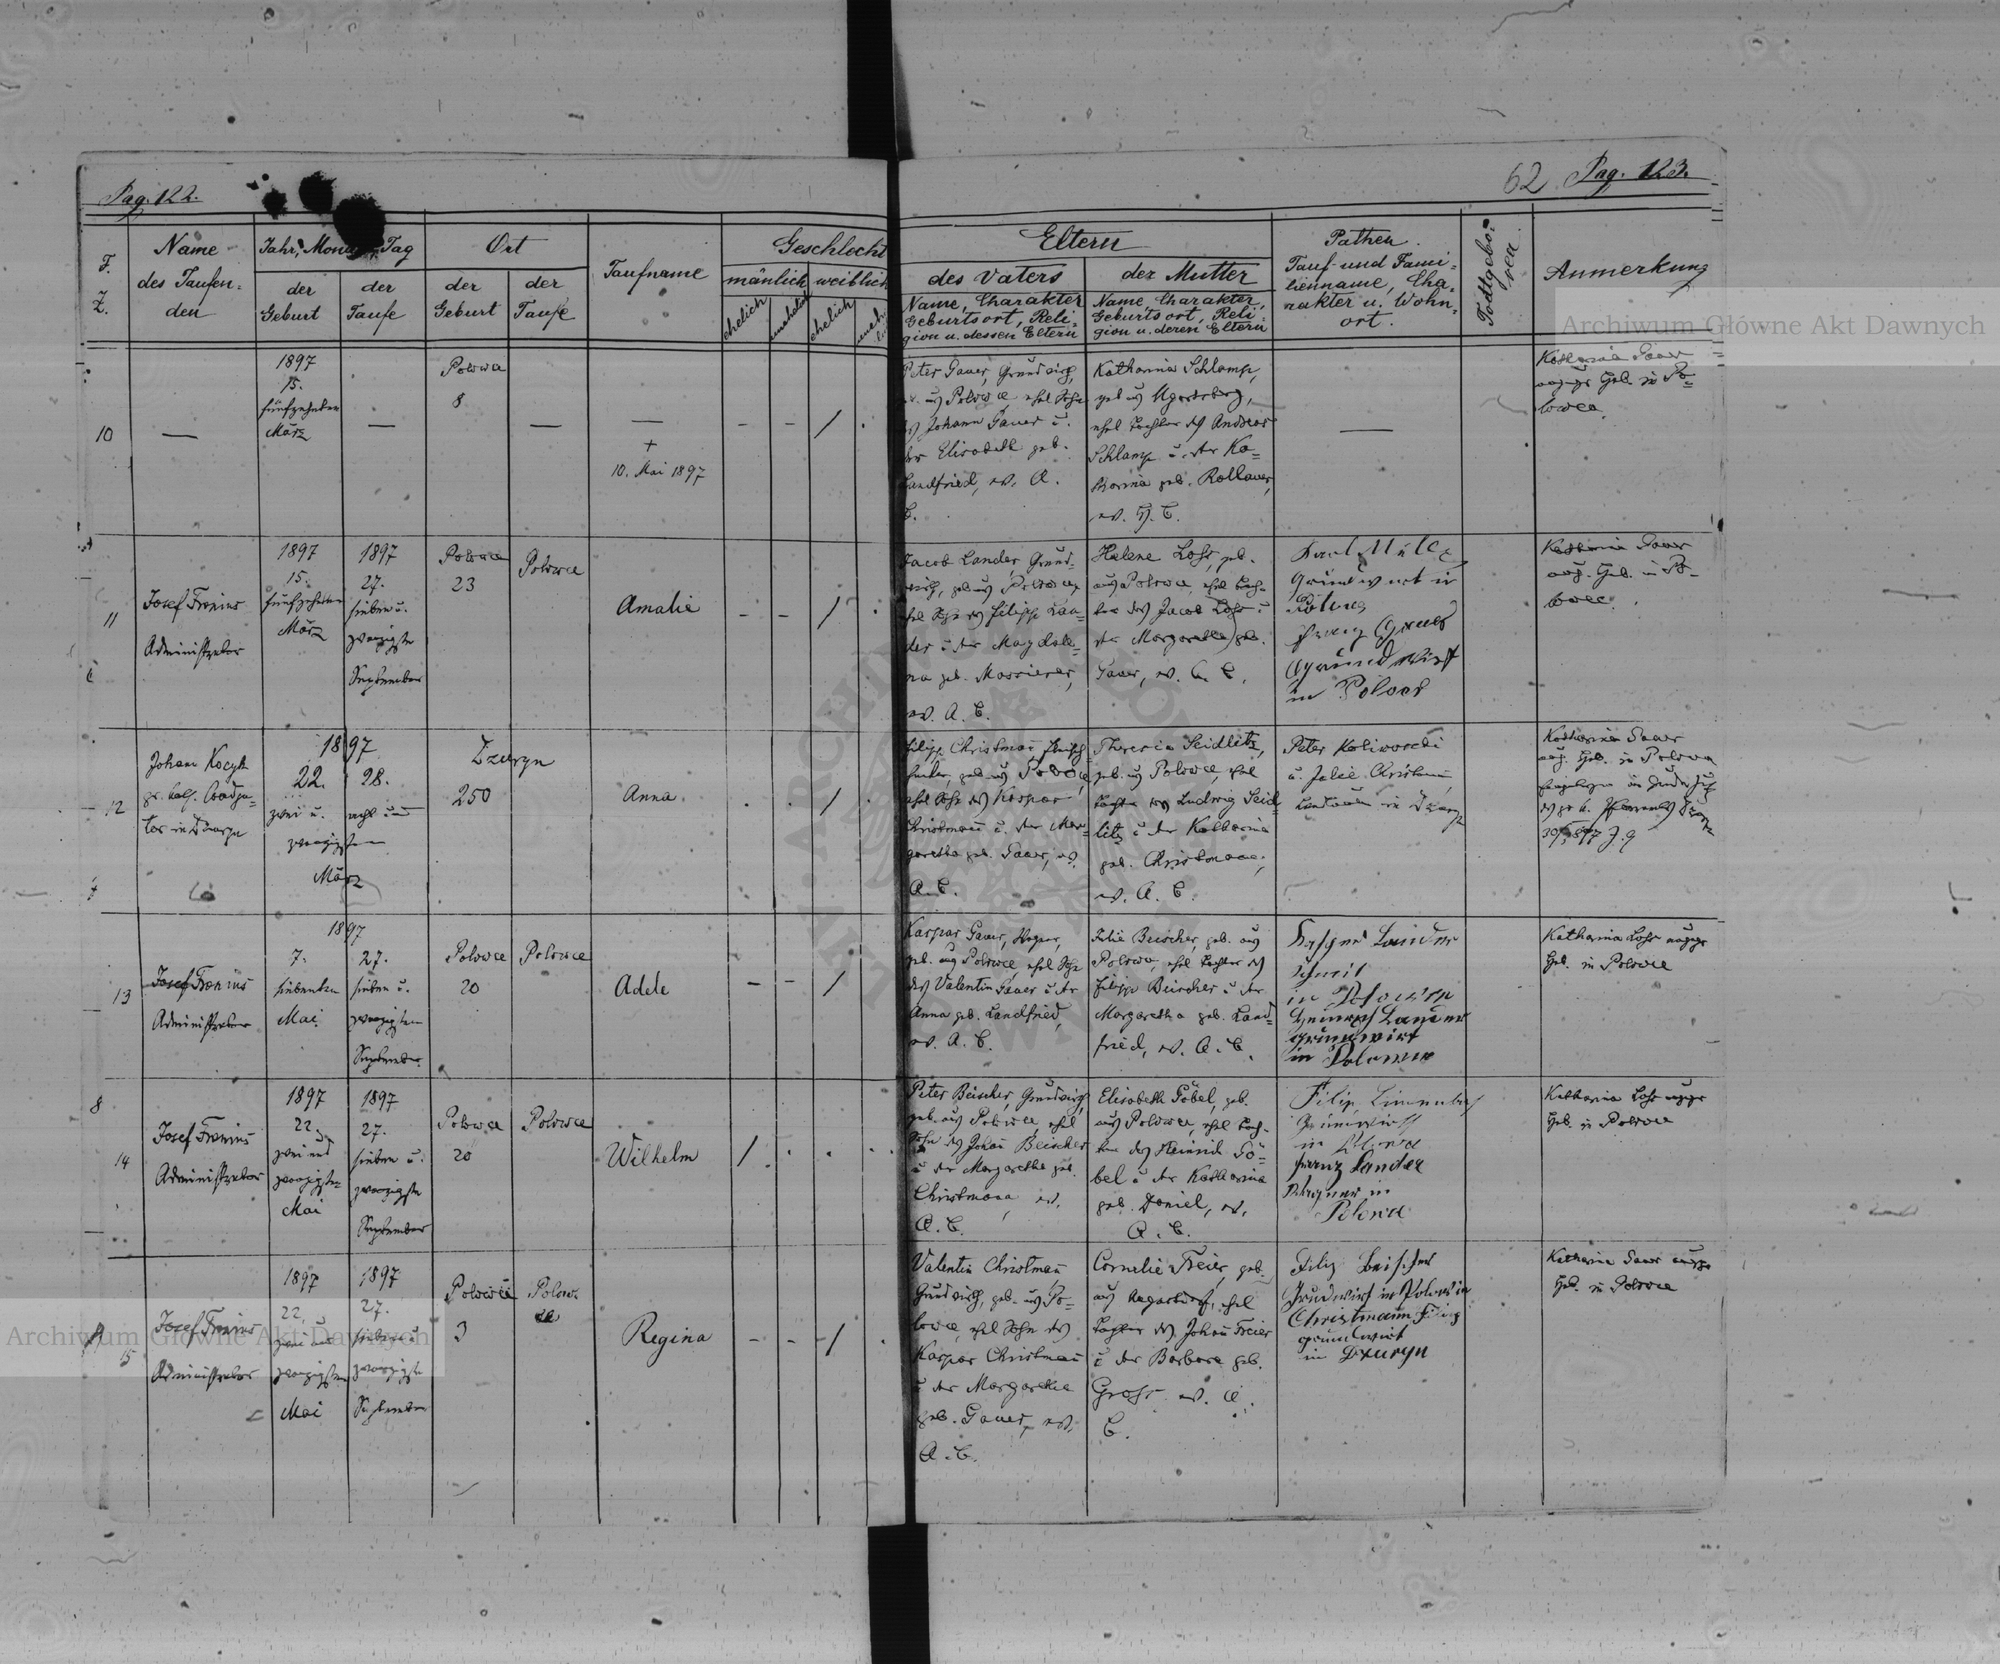 Pag. 122.
62 Pag. 123.
F. Z.
Name
des Taufen-
den
Jahr, Monat, Tag
der
Geburt
der
Taufe
Ort
der
Geburt
der
Taufe
Taufname
Geschlecht
mänlich
weiblich
ehelich
unehelich
ehelich
Eltern
des Vaters
Name, Charakter
Geburtsort, Reli-
gion u. dessen Eltern
der Mutter
Name, Charakter,
Geburtsort, Reli-
gion u. deren Eltern
Pathen.
Tauf- und Fami-
lienname, Cha-
rakter u. Wohn-
ort.
Todtgebo-
ren
Anmerkung
10
—
1897
15.
fünfzehnten
März
—
Polowce
8
—
—
+
10. Mai 1897
- - / .
Peter Gauer, Grundwirth,
aus Polowce, ehel. Sohn
des Johann Gauer u.
der Elisabeth geb.
Landfried, ev. A.
C.
Katharina Schlamp,
geb. aus Ugartsberg,
ehel. Tochter des Andreas
Schlamp u. der Ka-
tharina geb. Kollauer,
ev. H. C.
—
Katharina Gauer
Geb. in Po-
lowce.
11
Josef Fronius
Administrator
1897
15.
fünfzehnten
März
1897
27.
sieben u.
zwanzigste
September
Polowce
23
Polowce
Amalie
- - / .
Jacob Lander, Grund-
wirth, geb. aus Polowce,
ehel. Sohn des Filipp Lan-
der u. der Magdale-
na geb. Massierer,
ev. A. C.
Helene Lohr, geb.
aus Polowce, ehel. Toch-
ter des Jacob Lohr u.
der Margaretha geb.
Gauer, ev. A. C.
Grundwirt in
Grundwirt
in
Katharina Gauer
Geb. in Po-
lowce.
12
Johann Kocyk
gr. kath.
in Dzuryn
1897
22.
zwei u.
28.
acht und
zwanzigsten
März
Dzuryn
250
Anna
. . / .
Filipp Christmann
geb. aus Polowce,
ehel. Sohn des Kaspar
Christmann u. der Mar-
garetha geb. Gauer, ev.
A. C.
Theresia Seidlitz,
geb. aus Polowce, ehel.
Tochter des Ludwig Seid-
litz u. der Katharina
geb. Christmann,
ev. A. C.
Peter
u. Julie Christmann
in Dzuryn
Katharina Gauer
Geb. in Polowce
13
Josef Fronius
Administrator
1897
7.
siebenten
Mai
27.
sieben u.
zwanzigsten
September
Polowce
20
Polowce
Adele
- - /
Kaspar Gauer,
geb. aus Polowce, ehel. Sohn
des Valentin Gauer u. der
Anna geb. Landfried,
ev. A. C.
Julie Beischer, geb. aus
Polowce, ehel. Tochter des
Filipp Beischer u. der
Margaretha geb. Land-
fried, ev. A. C.
Lander
in
Lander
Grundwirt
in
Katharina Lohr
Geb. in Polowce
14
Josef Fronius
Administrator
1897
22.
zwei und
zwanzigsten
Mai
1897
27.
sieben u.
zwanzigste
September
Polowce
20
Polowce
Wilhelm
/ . . .
Peter Beischer, Grundwirth,
geb. aus Polowce, ehel.
Sohn des Johann Beischer
u. der Margaretha geb.
Christmann, ev.
A. C.
Elisabeth Göbel, geb.
aus Polowce, ehel. Toch-
ter des Heinrich Gö-
bel u. der Katharina
geb. Daniel, ev.
A. C.
Filip
Grundwirt
in
Franz Lander
in
Polowce
Katharina Lohr
Geb. in Polowce
15
Josef Fronius
Administrator
1897
22.
zwei und
zwanzigsten
Mai
1897
27.
sieben u.
zwanzigste
September
Polowce
3
Polow-
ce
Regina
- - / .
Valentin Christmann
Grundwirth, geb. aus Po-
lowce, ehel. Sohn des
Kaspar Christmann
u. der Margaretha
geb. Gauer, ev.
A. C.
Cornelie Freier, geb.
aus ehel.
Tochter des Johann Freier
u. der Barbara geb.
Grohs ev. A.
C.
Filip Beischer
Grundwirt in
Christmann Filip
Grundwirt
in Dzuryn
Katharina Gauer
Geb. in Polowce
Archiwum Główne Akt Dawnych
Archiwum Główne Akt Dawnych